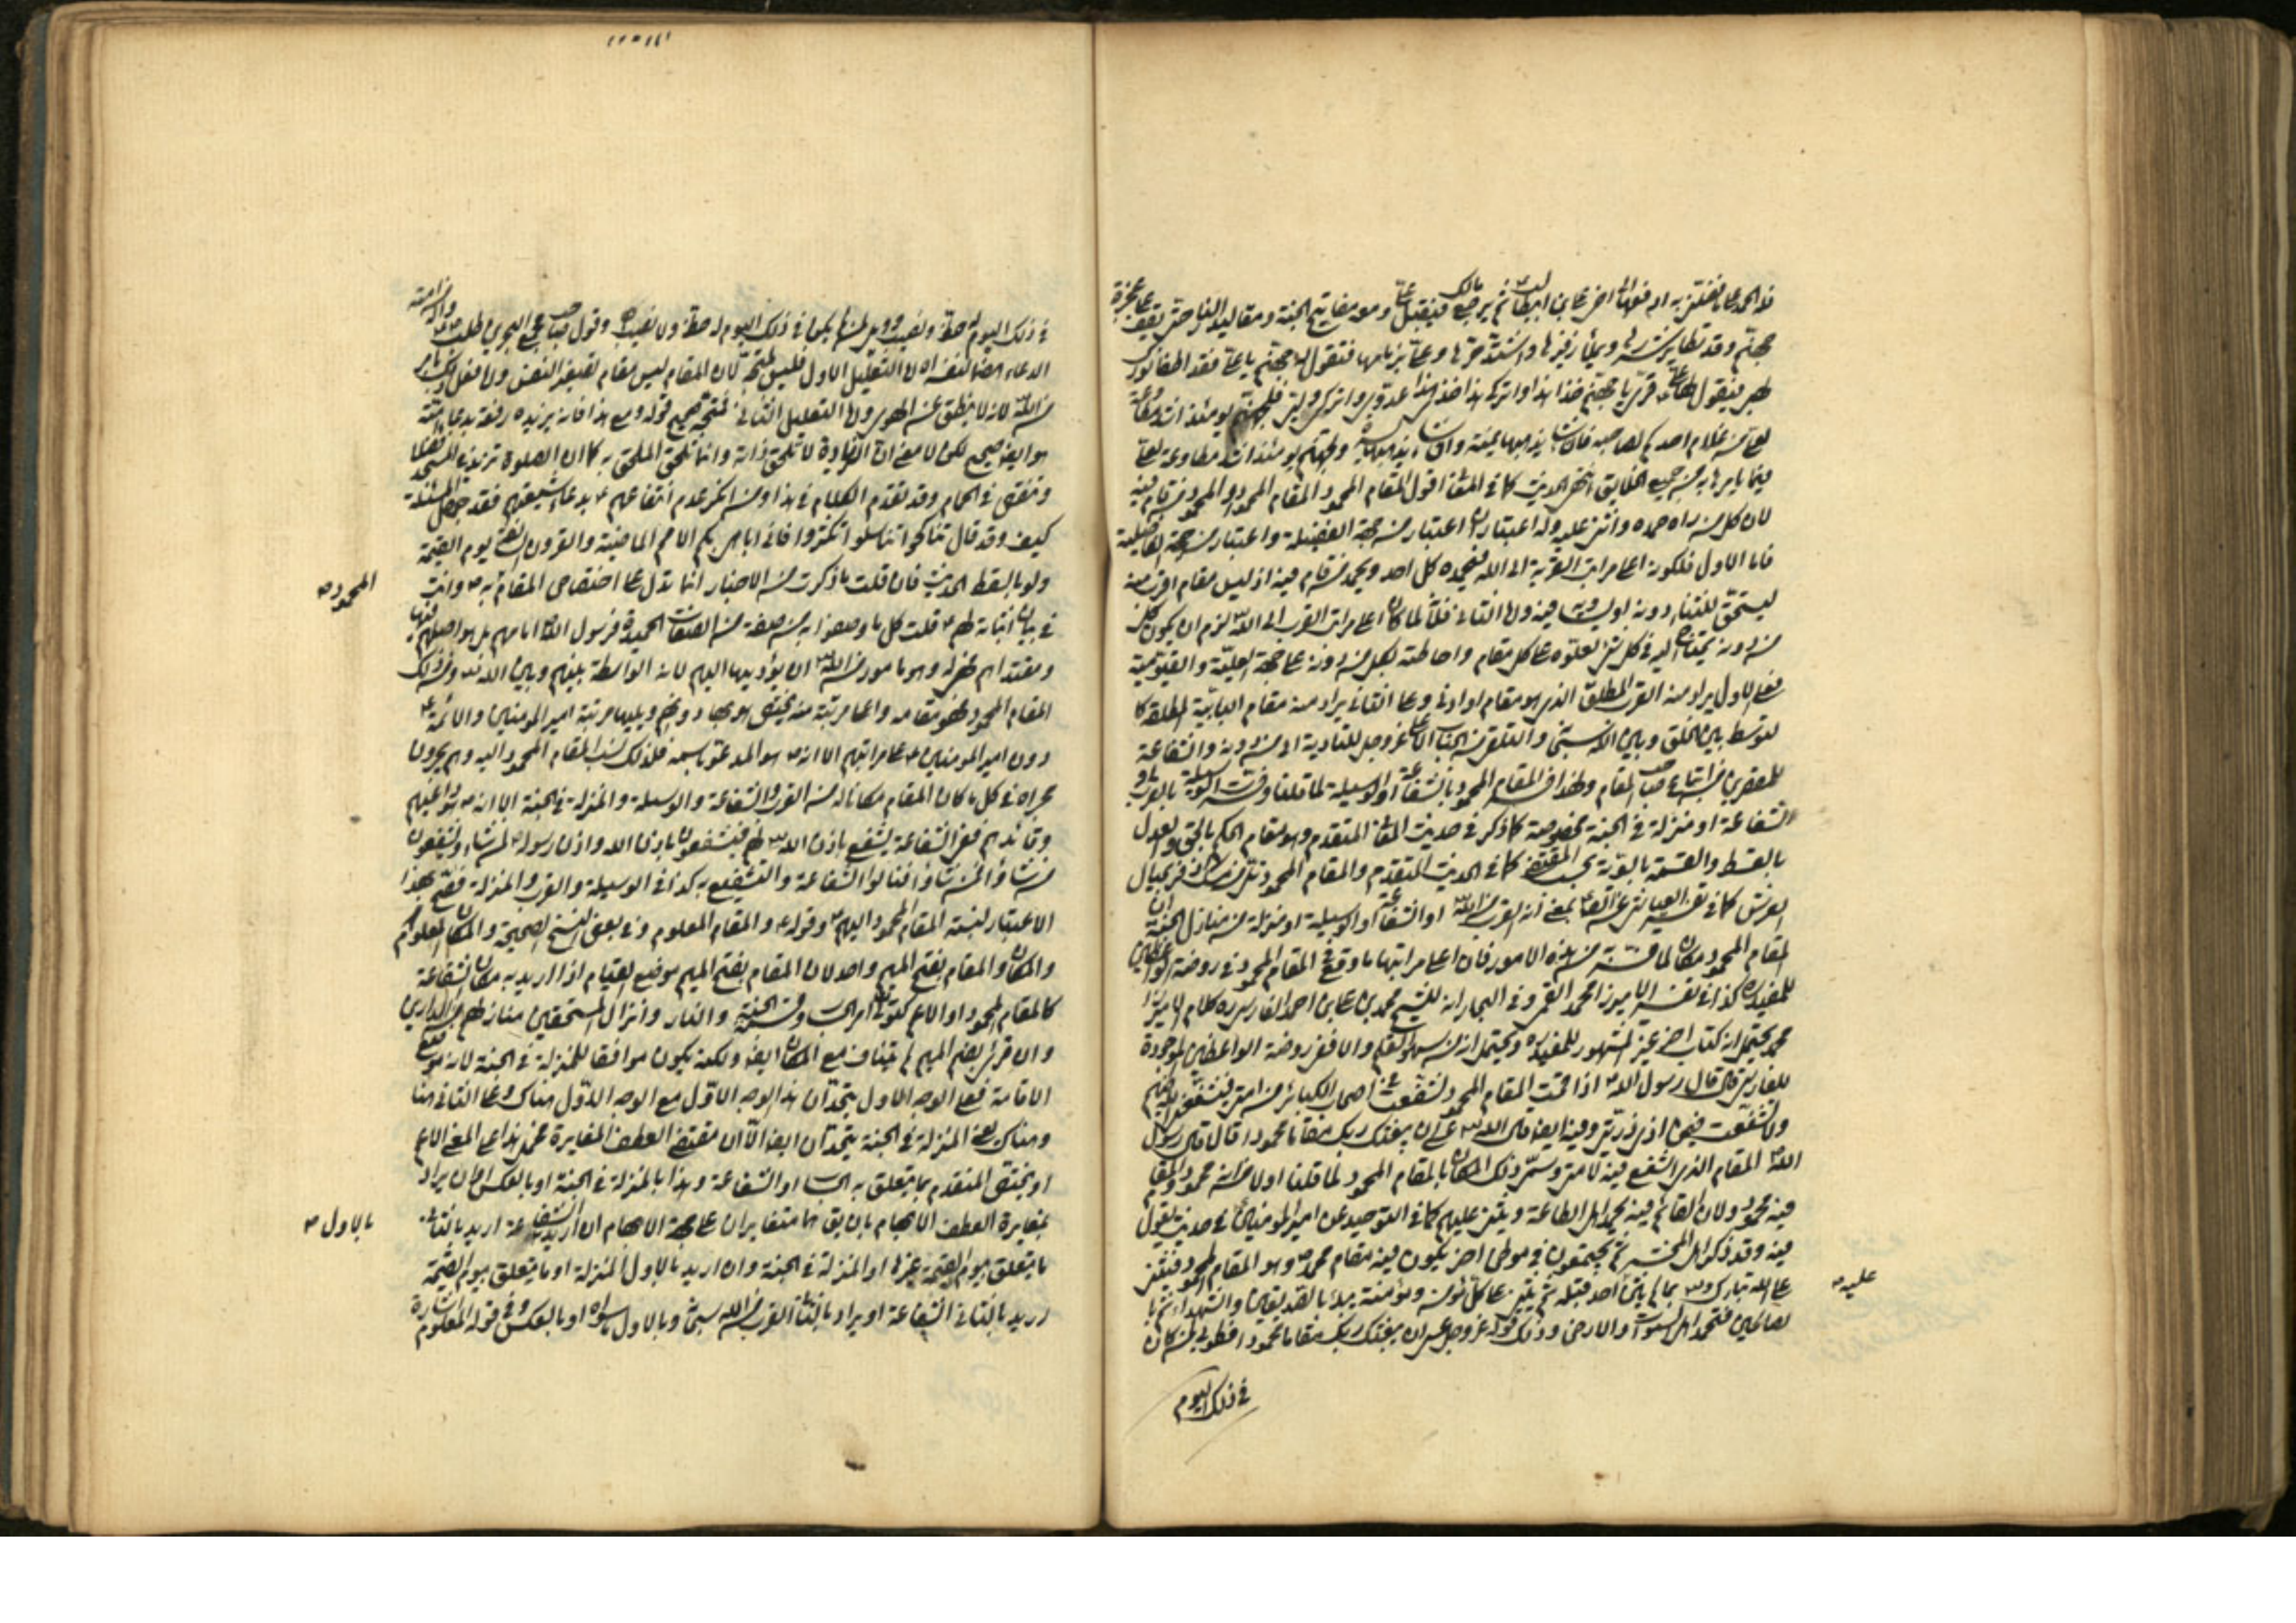 فله الحمد على ما تفضل به ادفعها الى اخي علي بن ابيطالب ثم يرجع مالك فيقبل علي ومعه مفاتيح الجنة ومقاليد النار حتى يقف على عجزة
جهنم وقد تطاير شررها وعلا زفيرها واشتد حرها وعلي اخذ بزمامها فتقول له جهنم يا علي فقد اطفا نورك
لهبي فيقول لها علي قري يا جهنم خذي هذا واتركي هذا خذي هذا عدوي واتركي هذا وليي فلجهنم يومئذ اشد مطاوعة
لعلي من غلام احدكم لصاحبه فان شاء يذهبها يمنة وان شاء يذهبها يسرة ولجهنم يومئذ اشد مطاوعة لعلي
فيما يامرها به من جميع الخلايق انتهى الحديث كما في المتقدم اقول المقام المحمود المقام المحمود من قام فيه
لان كل من راه حمده واثنى عليه وله اعتباران اعتبار من جهة الفضيلة واعتبار من جهة الفاضلية
فاما الاول فلكونه اعلى مراتب القربة الى الله فيحمده كل احد ويحمد من قام فيه اذ ليس مقام اقرب منه
ليستحق الثناء دونه او يساويه فيه واما الثاني فلانه لما كان اعلى مراتب القرب الى الله لزم ان يكون كل
من دونه يحتاج اليه في كل شيء لعلوه على كل مقام واحاطته بكل من دونه على جهة العلية والقيومية
فعلى الاول يراد منه القرب المطلق الذي هو مقام او ادنى وعلى الثاني يراد منه مقام البابية المطلقة
لتوسط بين الخلق وبين الله سبحانه والتلقي من الجناب الاعلى عز وجل للتادية الى من دونه والشفاعة
للمقصرين من اتباع صاحب المقام ولهذا فسر المقام المحمود بالشفاعة او الوسيلة لما قلنا وفسرت الوسيلة بالقرب او
الشفاعة او منزلة في الجنة مخصوصة كما ذكر في حديث المتقدم وهو مقام الحكم بالحق والعدل
بالقسط والقسمة بالسوية بحسب المقتضى كما في الحديث المتقدم والمقام المحمود
العرش كما في تفسير العياشي عن الصادق بمعنى انه القرب من الله او الشفاعة او الوسيلة او منزلة من منازل الجنة
المقام المحمود مكان لما هذه الامور فان اعلى مراتبها ما وقع في المقام المحمود في روضة الواعظين
للمفيد كذا في تفسير الاميرزا محمد القمي وفي البحار انه للشيخ محمد بن علي بن احمد الفارسي كلام الاميرزا
محمد يحتمل انه كتاب اخر غير المشهور للمفيد ويحتمل انه من سهو القلم والا ففي روضة الواعظين الموجودة
للفارسي قال قال رسول الله اذا قمت المقام المحمود تشفعت في اصحاب الكبائر من امتي فيشفعني الله فيهم
ولا تشفعت فيمن اذى ذريتي وفيه ايضا قال الله عسى ان يبعثك ربك مقاما محمودا قال قال رسول
الله المقام الذي اشفع فيه لامتي وسمي ذلك المكان بالمقام المحمود لما قلنا اولا من انه محمود والمقيم
فيه محمود ولان القائم فيه يحمد اهل الطاعة ويثني عليهم كما في التوحيد عن امير المؤمنين في حديث يقول
فيه وقد ذكر اهل المحشر ثم يجتمعون في موطن اخر يكون فيه مقام محمد وهو المقام المحمود فيثني
على الله تبارك وتعالى بما لم يثن احد قبله ثم يثني على كل مؤمن ومؤمنة يبدأ بالصديقين والشهداء ثم با
لصالحين فتحمده اهل السموات والارض وذلك قوله عز وجل عسى ان يبعثك ربك مقاما محمودا فطوبى لمن كان
في ذلك اليوم
عليه
في ذلك اليوم له حظ ونصيب وويل لمن لم يكن في ذلك اليوم له حظ ولا نصيب وقول صاحب مجمع البحرين طلب
الدعاء لنفسه ان التعليل الاول فليس بمتجه لان المقام ليس مقام
من الله لانه لا ينطق عن الهوى واما التعليل الثاني فمتجه صحيح قوله ومع هذا فانه يزيده رفعة بدعاء امته
هو ايضا صحيح لكن لا معنى ان الزيادة لا تلحق ذاته وانما تلحق الملحق به كما ان الصلوة تزيد في المسجد
وتنقص في الحمام وقد تقدم الكلام في هذا ومن انكر عدم انتفاعهم بدعاء شيعتهم فقد جهل المسئلة
كيف وقد قال تناكحوا تناسلوا تكثروا فاني اباهي بكم الامم الماضية والقرون السالفة يوم القيمة
ولو بالسقط الحديث فان قلت ما ذكرت من الاخبار انما تدل على اختصاص المقام به وانت
المحمود
في بيان اثباته لهم قلت كل ما وصفوا به من صفة من الصفات الحميدة فرسول الله امامهم بل هو اصلهم فيها
ومقتداهم وهو مامور من الله ان يؤديها اليهم لانه الواسطة بينهم وبين الله ومن ذلك
المقام المحمود فهو مقامه واعلا مرتبة منه يختص هو بها دونهم ويليها مرتبة امير المؤمنين والائمة
دون امير المؤمنين على مراتبهم الا انه هو المدعو باسمه فلذلك نسب المقام المحمود اليه وهم يجرون
مجراه في كل ما كان المقام مكانا له من القرب والشفاعة والوسيلة والمنزلة في الجنة الا انه هو داعيهم
وقائدهم ففي الشفاعة يشفع باذن الله لهم فيشفعون باذن الله واذن رسوله لمن شاء ويشفعون
من شاؤا لمن شاؤا فنالوا الشفاعة والتشفيع به كذا في الوسيلة والقرب والمنزلة فصح بهذا
الاعتبار نسبة المقام المحمود اليهم وقوله والمقام المعلوم وفي بعض النسخ الصحيحة والمكان المعلوم
والمكان والمقام بفتح الميم واحد لان المقام بفتح الميم موضع القيام اذا اريد به مكان الشفاعة
كالمقام المحمود او الاعم كتولي امر الحساب وقسمة الجنة والنار وانزال المستحقين منازلهم من الدارين
وان قرئ بضم الميم لم يتناف مع المكان ايضا ولكنه يكون موافقا للمنزلة في الجنة لانه موضع
الاقامة فعلى الوجه الاول يتحد ان هذا الوجه الاول مع الوجه الاول هناك وعلى الثاني هنا
وهناك بمعنى المنزلة في الجنة يتحد ان ايضا الا ان مقتضى العطف المغايرة فيحمل هذا على المعنى الاعم
او يختص المتقدم بما يتعلق به الحساب او الشفاعة وهذا بالمنزلة في الجنة او بالعكس او ان يراد
بمغايرة العطف الابهام بان يقال هما متغايران على جهة الابهام ان اريد الشفاعة اريد بالثاني
بالاول
ما يتعلق بيوم القيمة غيرها او المنزلة في الجنة وان اريد بالاول المنزلة او ما يتعلق بيوم القيمة
اريد بالثاني الشفاعة او يراد بالثاني القرب من الله سبحانه وبالاول ما سواه او بالعكس وفي قوله المعلوم اشارة